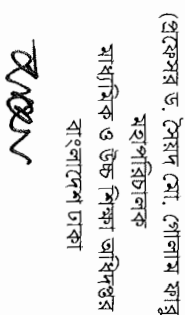 (প্রফেসর ড. সৈয়দ মো. গোলাম ফারু
মহাপরিচালক
মাধ্যমিক ও উচ্চ শিক্ষা অধিদপ্তর
বাংলাদেশ ঢাকা